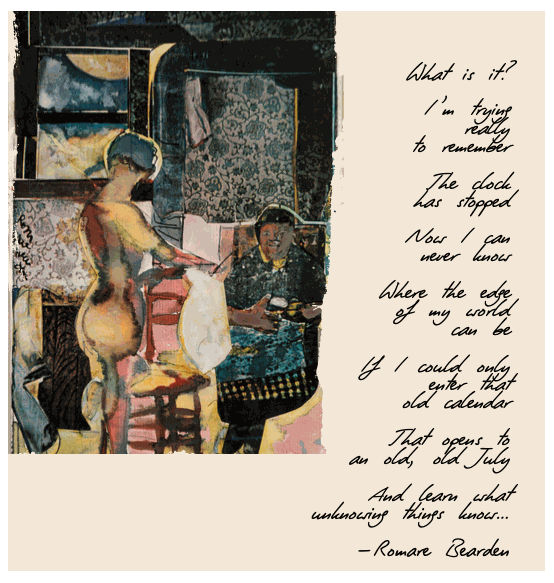 What is it?
I'm trying
really
to remember
The clock
has stopped
Now I can
never know
Where the edge
of my world
can be
If I could only
enter that
old calendar
That opens to
an old, old July
And learn what
unknowing things know...
—Romare Bearden